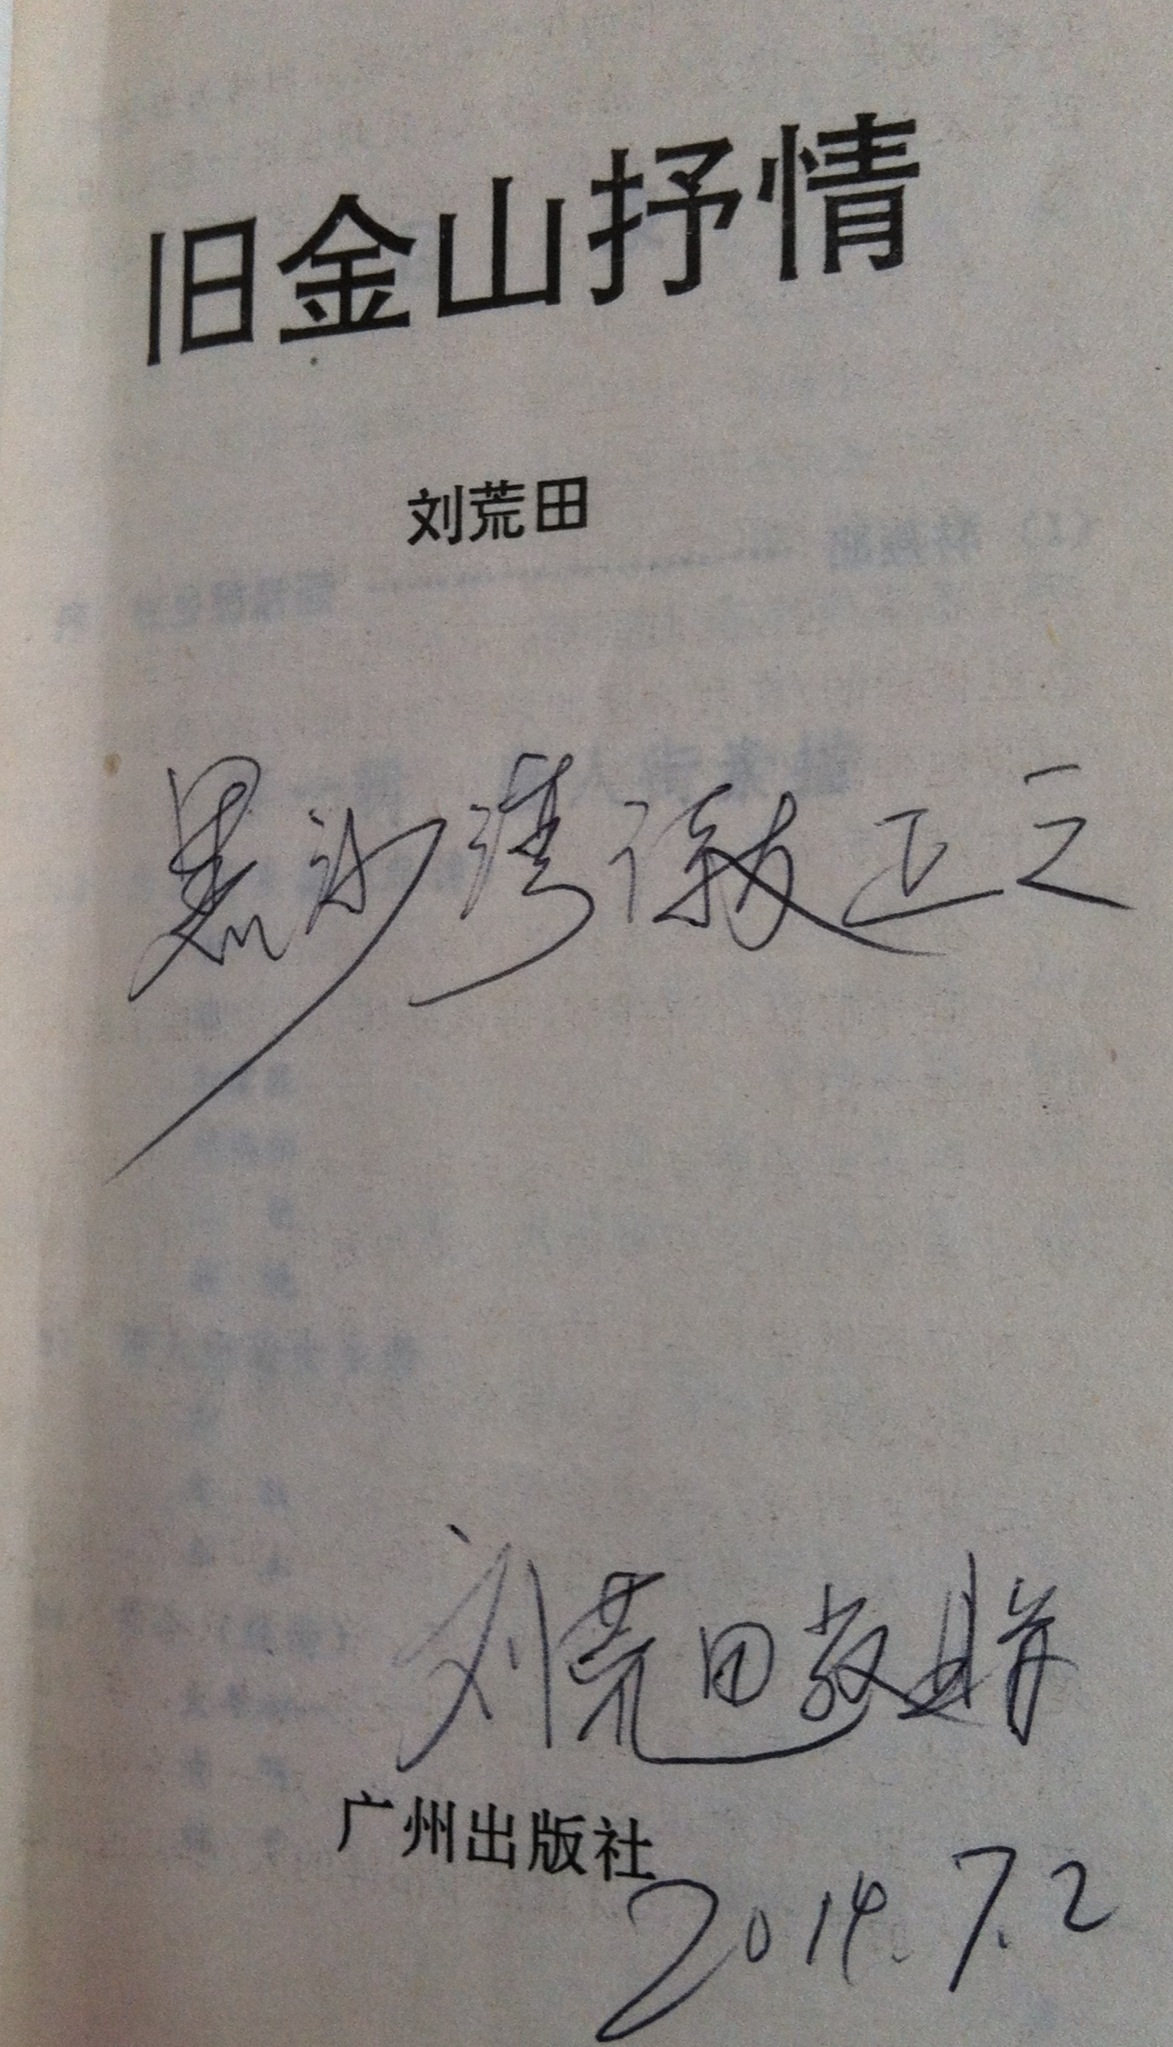 旧金山抒情
刘荒田
沙湾 正之
刘荒田敬赠
广州出版社
2014.7.2